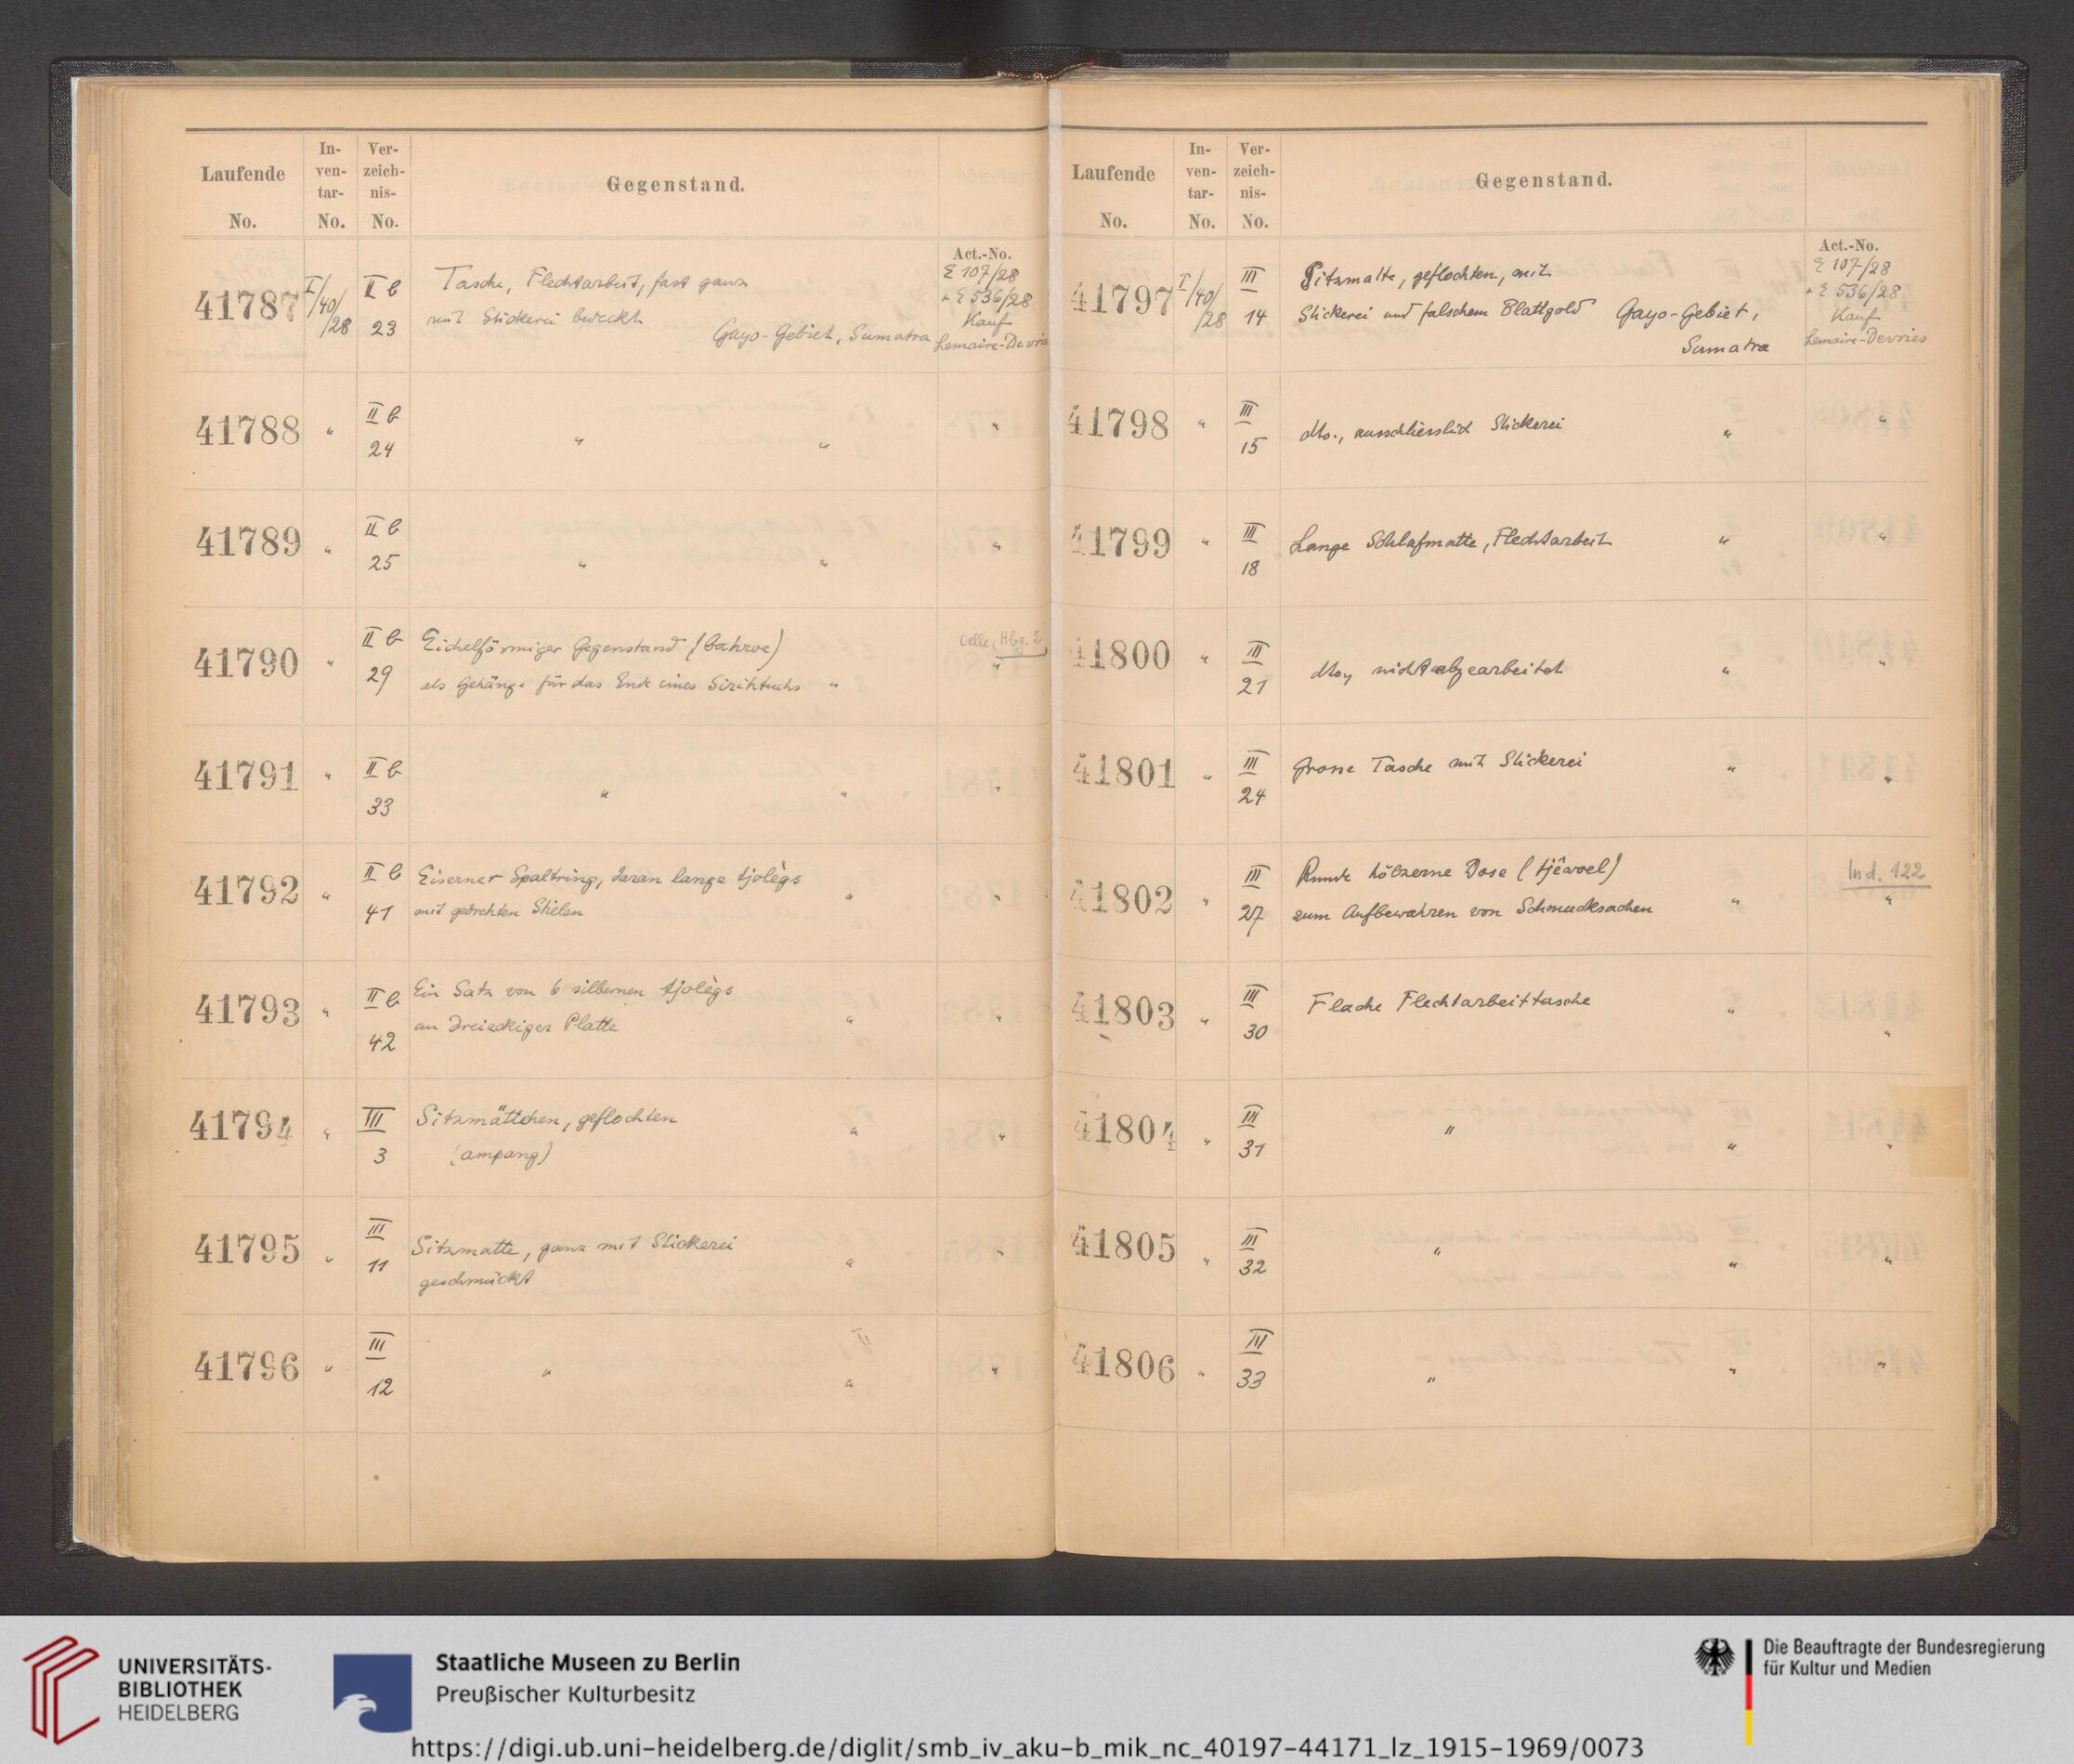 Laufende No.
In-ven-tar-No.
Ver-zeich-nis-No.
Gegenstand.
Act.-No.
41787 I/40/28 II b 23 Tasche, Flechtarbeit, fast ganz
mit Stickerei bedeckt
Gayo-Gebiet, Sumatra
E 107/28
+ E 536/28
Kauf
Lemaire-Devries
41788 " II b 24 " " "
41789 " II b 25 " " "
41790 " II b 29 Eichelförmiger Gegenstand (bahroe)
als Gehänge für das Ende eines Sirihtuchs " "
Hbg. 2
41791 " II b 33 " " "
41792 " II b 41 Eiserner Spaltring, daran lange tjolègs
mit gedrehten Stielen " "
41793 " II b 42 Ein Satz von 6 silbernen tjolègs
an dreieckiger Platte " "
41794 " III 3 Sitzmättchen, geflochten
(ampang) " "
41795 " III 11 Sitzmatte, ganz mit Stickerei
geschmückt " "
41796 " III 12 " " "
Laufende No.
In-ven-tar-No.
Ver-zeich-nis-No.
Gegenstand.
Act.-No.
41797 I/40/28 III 14 Sitzmatte, geflochten, mit
Stickerei und falschem Blattgold Gayo-Gebiet,
Sumatra
E 107/28
+ E 536/28
Kauf
Lemaire-Devries
41798 " III 15 dto., ausschliesslich Stickerei " "
41799 " III 18 Lange Schlafmatte, Flechtarbeit " "
41800 " III 21 dto, nicht abgearbeitet " "
41801 " III 24 Grosse Tasche mit Stickerei " "
41802 " III 27 Runde hölzerne Dose (tjêroel)
zum Aufbewahren von Schmucksachen " "
Ind. 122
41803 " III 30 Flache Flechtarbeittasche " "
41804 " III 31 " " "
41805 " III 32 " " "
41806 " III 33 " " "
UNIVERSITÄTS-
BIBLIOTHEK
HEIDELBERG
Staatliche Museen zu Berlin
Preußischer Kulturbesitz
Die Beauftragte der Bundesregierung
für Kultur und Medien
https://digi.ub.uni-heidelberg.de/diglit/smb_iv_aku-b_mik_nc_40197-44171_lz_1915-1969/0073